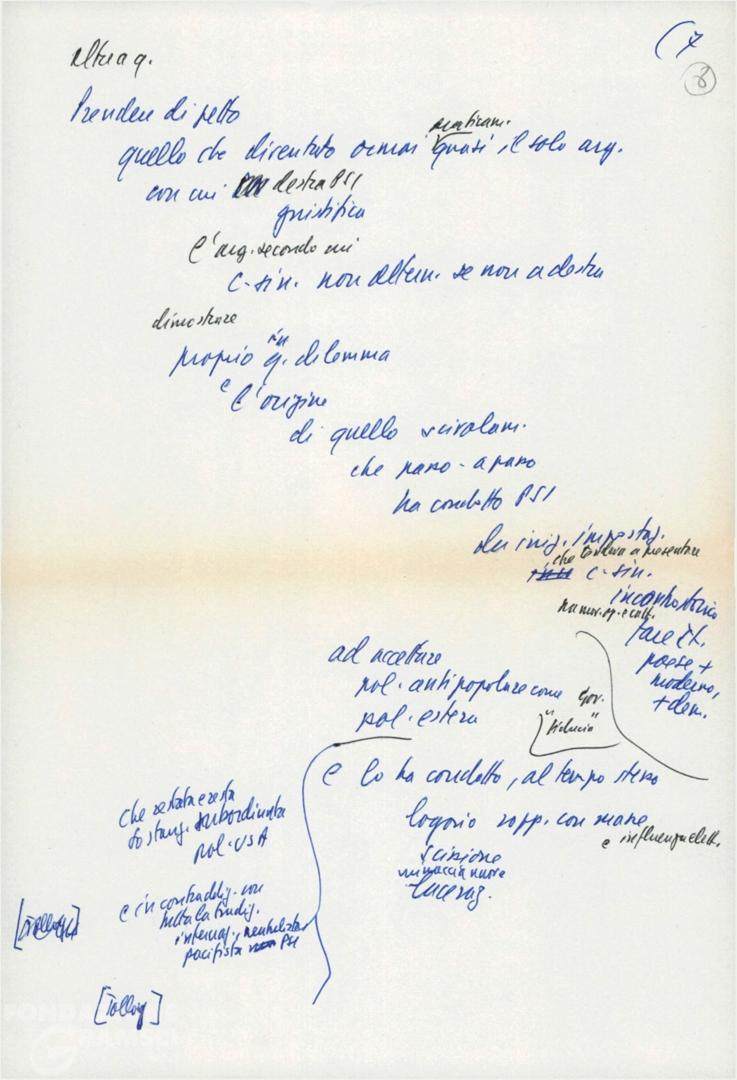 (7
8
altra q.
Prendere di petto
quello che diventato ormai quasi, il solo arg.
praticam.
con cui destra PSI
giustifica
l'arg. secondo cui
c-sin. non altern. se non a destra
dimostrare
proprio in q. dilemma
è l'origine
di quello scivolam.
che passo-a passo
ha condotto PSI
da iniz. impostaz.
che tendeva a presentare
c-sin.
incontro storico
fare It.
paese +
moderno,
+ dem.
ad accettare
pol. antipopolare come gov.
pol. estera "fiducia"
e lo ha condotto, al tempo stesso
logorio rapp. con masse
e influenza elett.
scissione
minaccia nuove
laceraz.
che restata e resta
sostanz. subordinata
pol. USA
e in contraddiz. con
tutta la tradiz.
internaz., neutralista
pacifista PSI
[Tolloy]